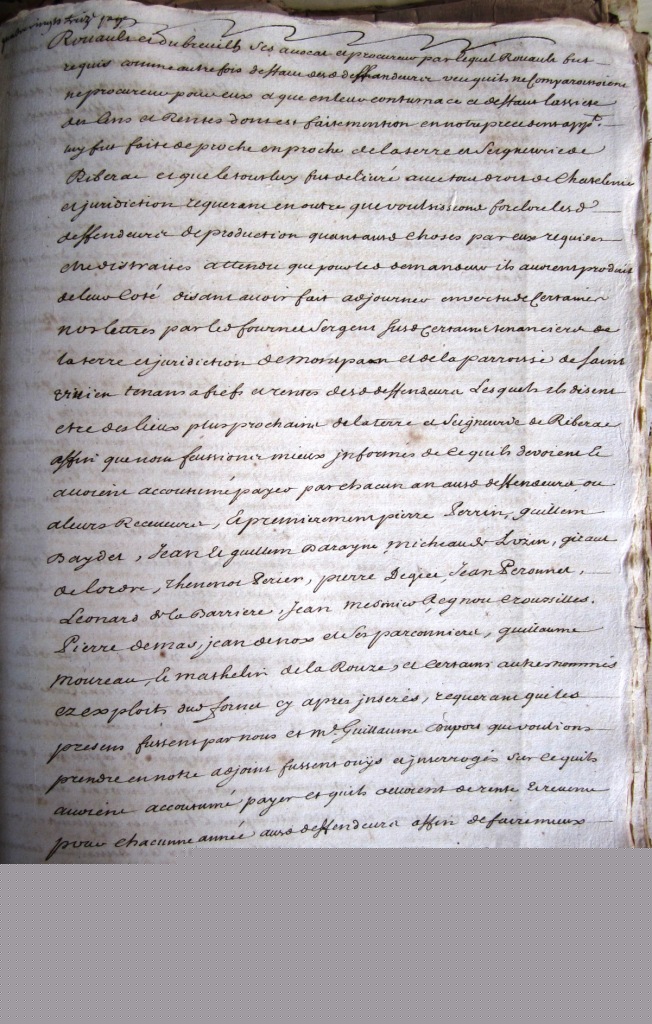 quatre vingts treize pages
Rouault et dubreuilh ses avocat et procureur par lequel Rouault fut
requis comme autre fois deffaut desd. deffandeurs veu quils ne Comparoissoient
ne procureur pour eux et que en leur contumace et deffaut lassiete
des Cens et Rentes dont est fait mention en notre precedent appt.
luy fut faite de proche en proche de la terre et Seigneurie de
Riberac et que le tout luy fut delivré avec tous droits de Chatelenie
et juridiction requerant en outre que voulsissions forclore lesd.
deffendeurs de production quant aux choses par eux requises
etre distraites attendu que pour led demandeur ils avoient produit
de leur Coté disant avoir fait adjourner en vertu de Certaines
nos lettres par led fournet Sergent susd certains tenanciers de
la terre et juridiction de monpaon et de la parroisse de saint
vivien tenans a fiefs et rentes desd deffendeurs Lesquels ils disent
etre des lieux plus prochains de la terre et Seigneurie de Riberac
affin que nous feussions mieux jnformes de ce quils devoient et
avoient accoutumé payer par chacun an ausd deffendeurs ou
a leurs Receveurs, Et premierement pierre Perrin, guillem
Baydet, Jean et guillem Barayne, micheau de Lozen, giraut
de lordre, Thenenot Perier, pierre Degier, Jean Peronnet,
Leonard de la Barriere, Jean mesnico Regnou Crouzilles.
Pierre demas, jean denox et Ses parconniers, guillaume
moureau, et mathelin de la Rouze, et Certains autres nommés
ez exploits dud fornet cy apres jnserés, requerant que les
presens fussent par nous et Me Guillaume Dupois que voulions
prendre en notre adjoint fussent ouijs et jnterrogés sur ce quils
avoient accoutumé payer et quils devoient de rente et revenu
pour chacunne année ausd deffendeurs affin de faire mieux